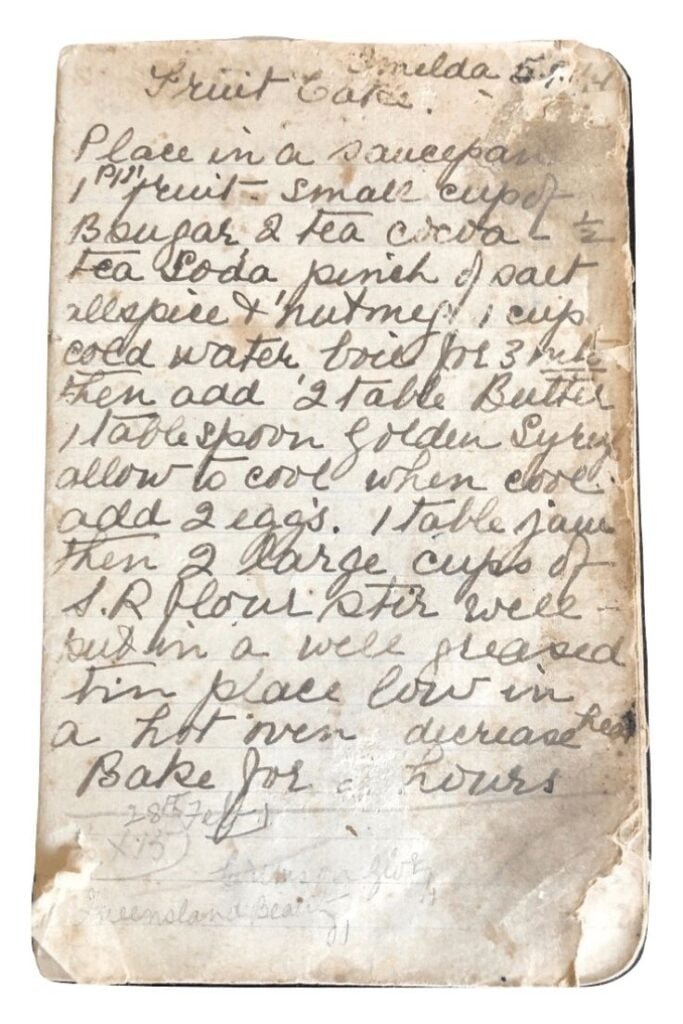 Imelda 5.9.
Fruit Cake.
Place in a saucepan
1 fruit. small cup of
B sugar, 2 tea cocoa - ½
tea Soda pinch of salt
allspice & nutmeg, 1 cup
cold water boil for 3
then add 2 table Butter
1 tablespoon Golden Syrup
allow to cool when cool
add 2 eggs. 1 table jam
then 2 large cups of
S.R flour stir well -
put in a well greased
tin place low in
a hot oven decrease heat
Bake for hours
28th Feb
X 73
Queensland Beauty